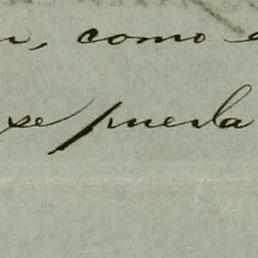 como
se pueda